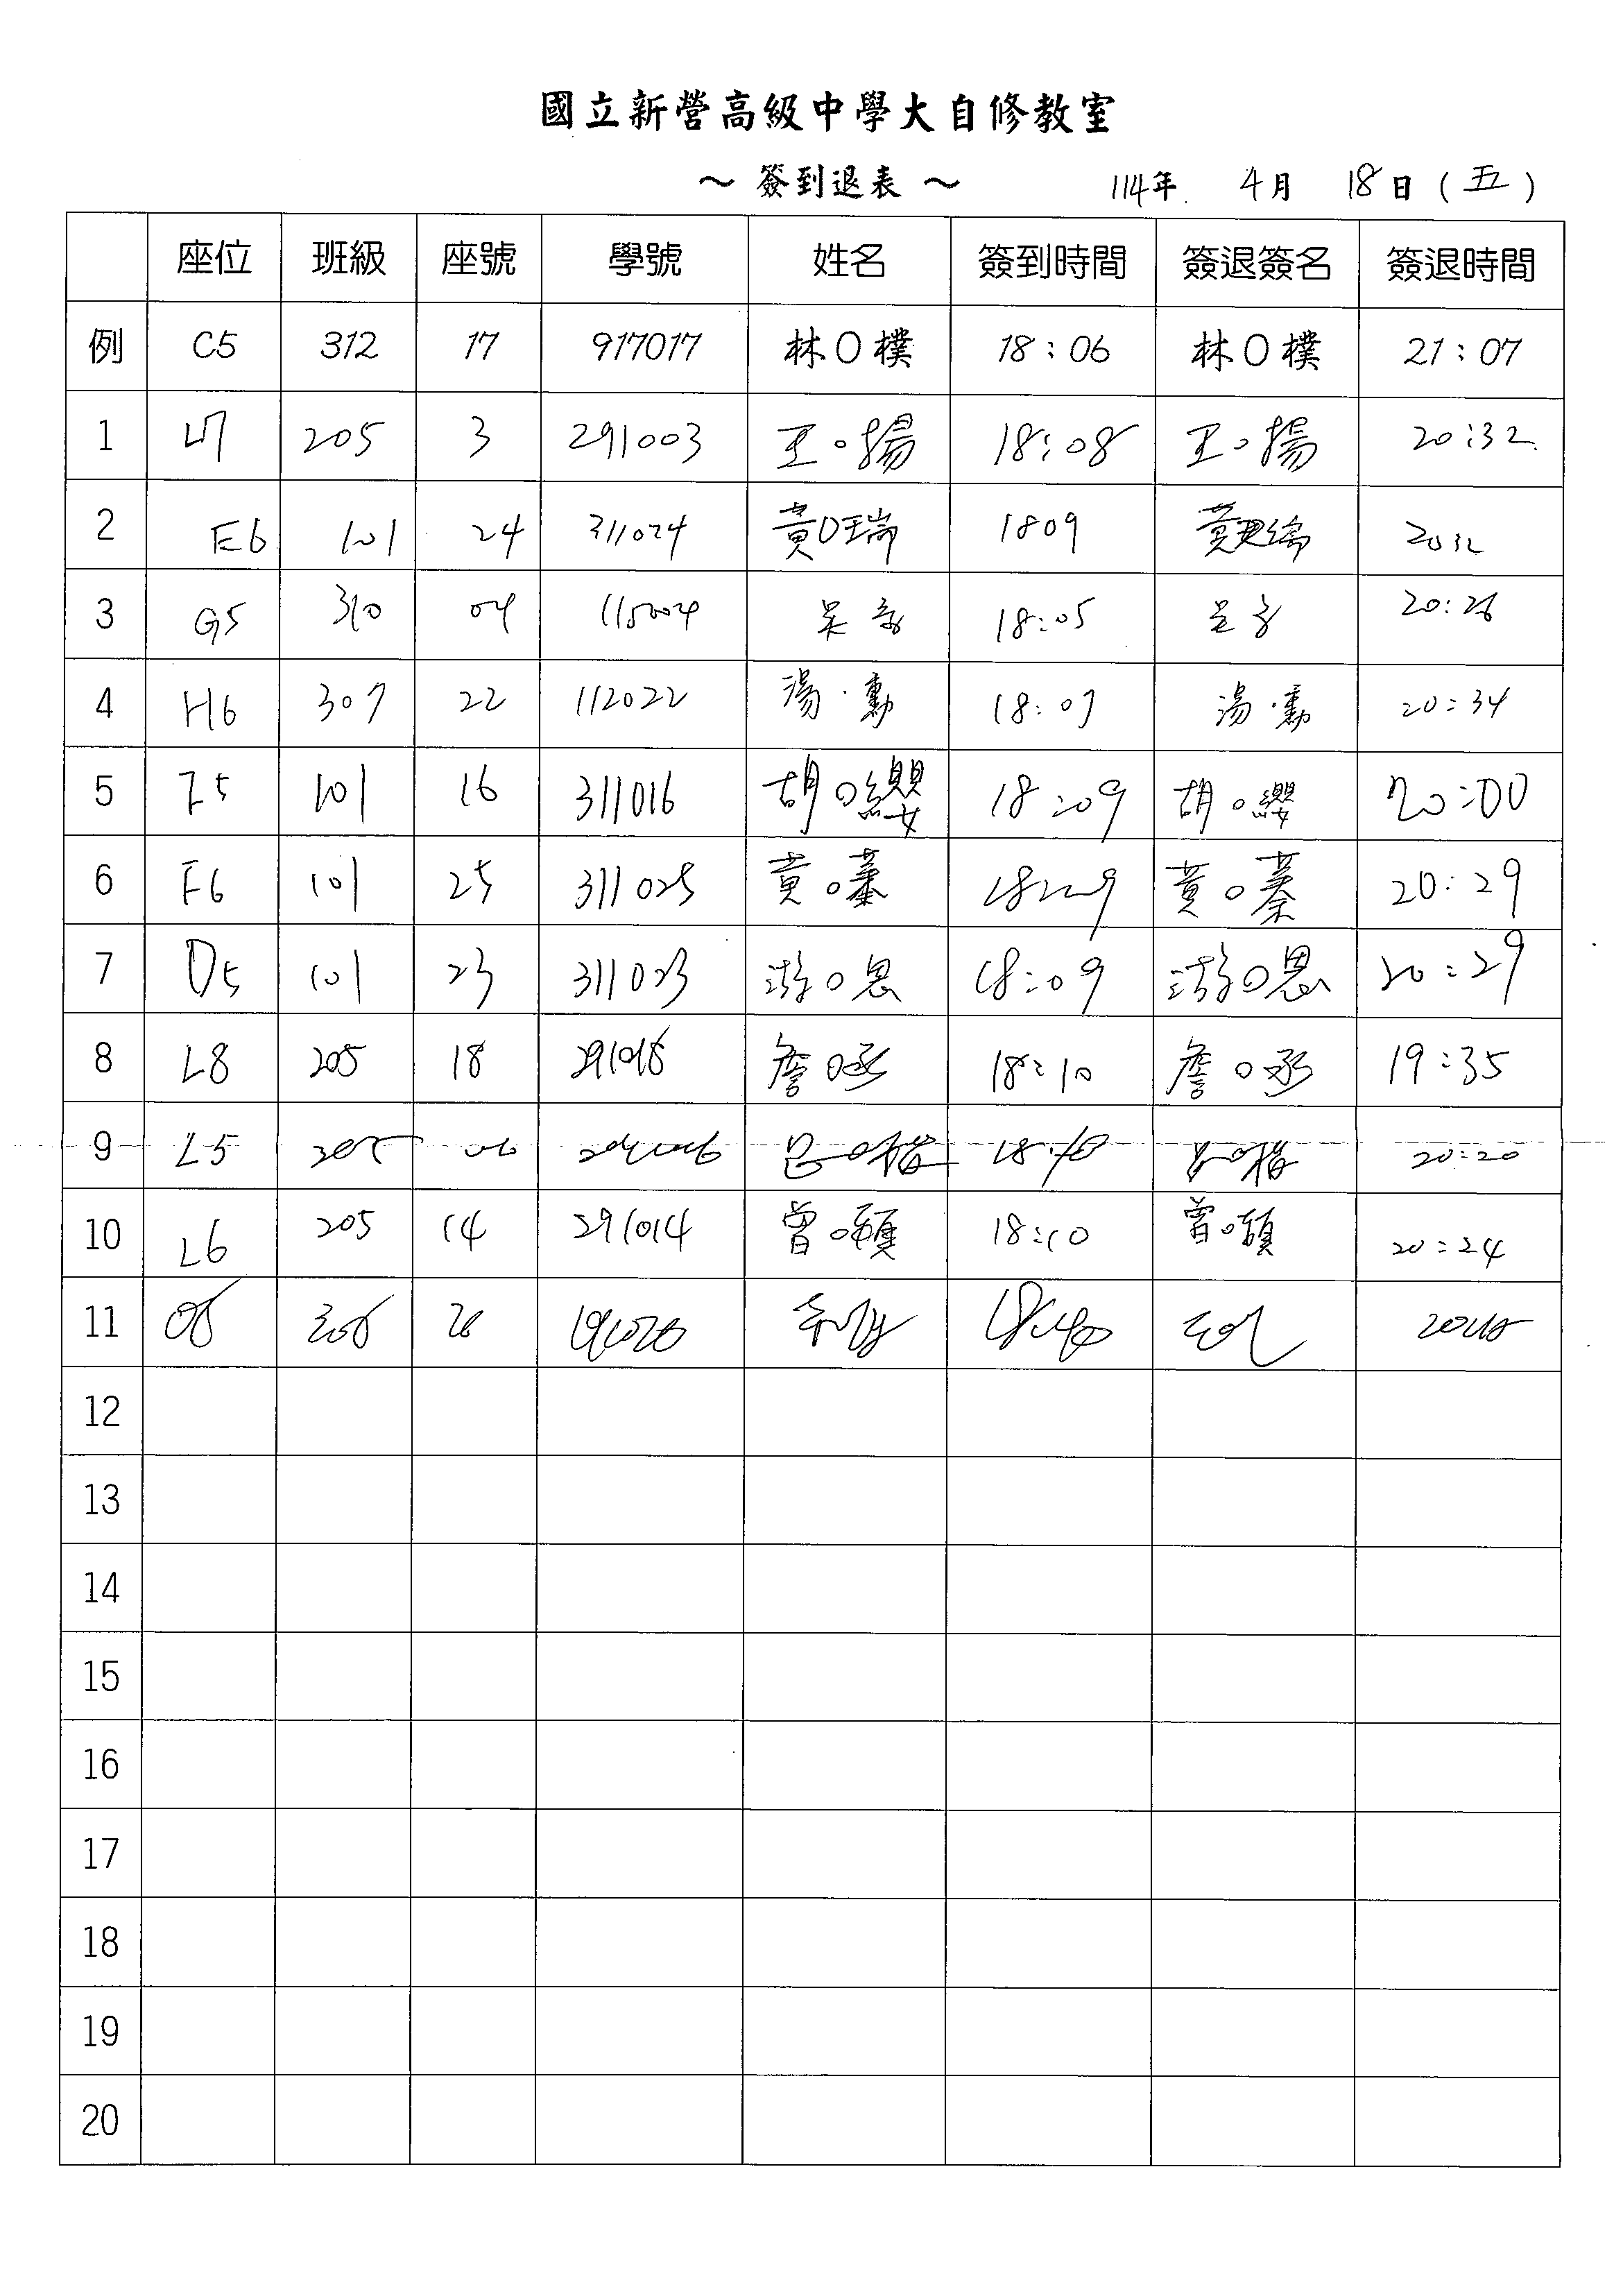 國立新營高級中學大自修教室
～ 簽到退表 ～ 114年 4月 18日(五)
座位 班級 座號 學號 姓名 簽到時間 簽退簽名 簽退時間
例 C5 312 17 917017 林O樸 18:06 林O樸 21:07
1 L7 205 3 291003 王○揚 18:08 王○揚 20:32
2 E6 101 24 311024 黃O瑞 1809 黃 2032
3 G5 310 04 115004 吴 18:05 20:26
4 H6 307 22 112022 湯·勳 18:07 湯·勳 20:34
5 F5 101 16 311016 胡○纓 18:09 胡○纓 20:00
6 F6 101 25 311025 黃○蓁 18:09 黃○蓁 20:29
7 D5 101 23 311023 游○恩 18:09 游○恩 20:29
8 L8 205 18 291018 詹○丞 18:10 詹○丞 19:35
9 L5 205 06 呂○ 20:20
10 L6 205 14 291014 曾○ 18:10 曾○ 20:24
11 306 26
12
13
14
15
16
17
18
19
20